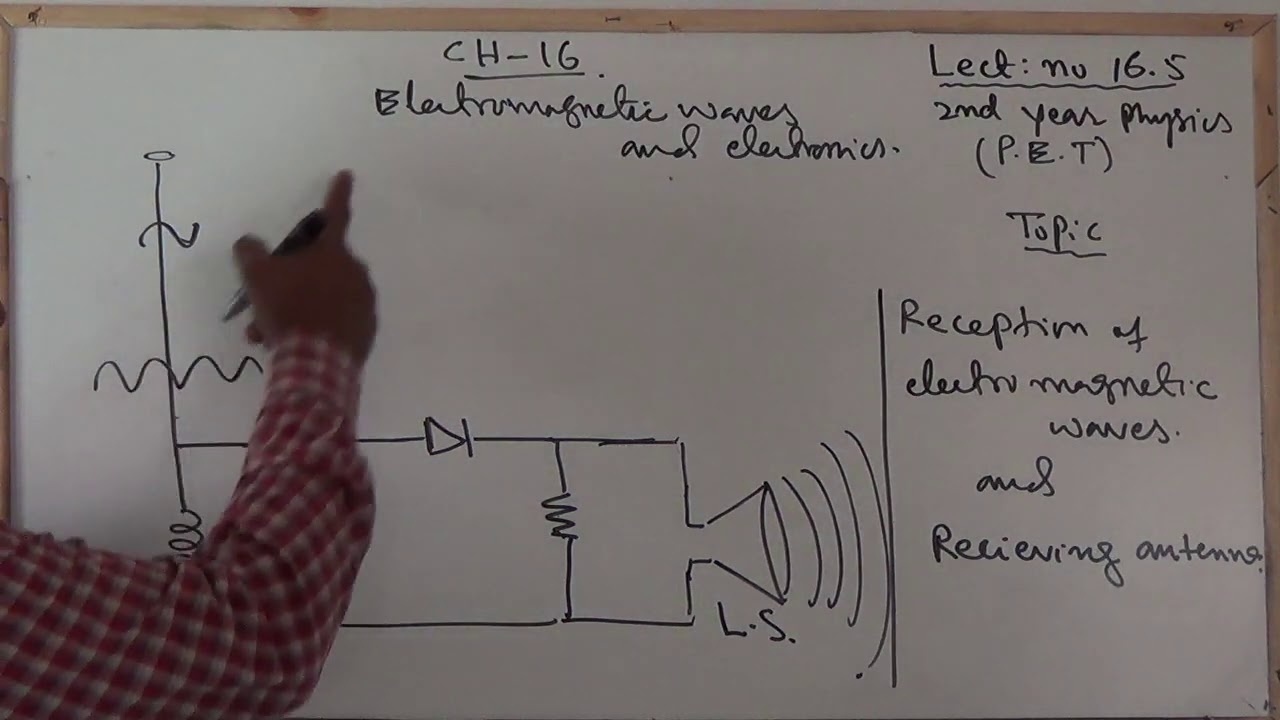 CH-16
Electromagnetic waves
and electronics.
Lect: no 16.5
2nd year physics
(P.E.T)
Topic
Reception of
electromagnetic
waves.
and
Recieving antenna.
L.S.